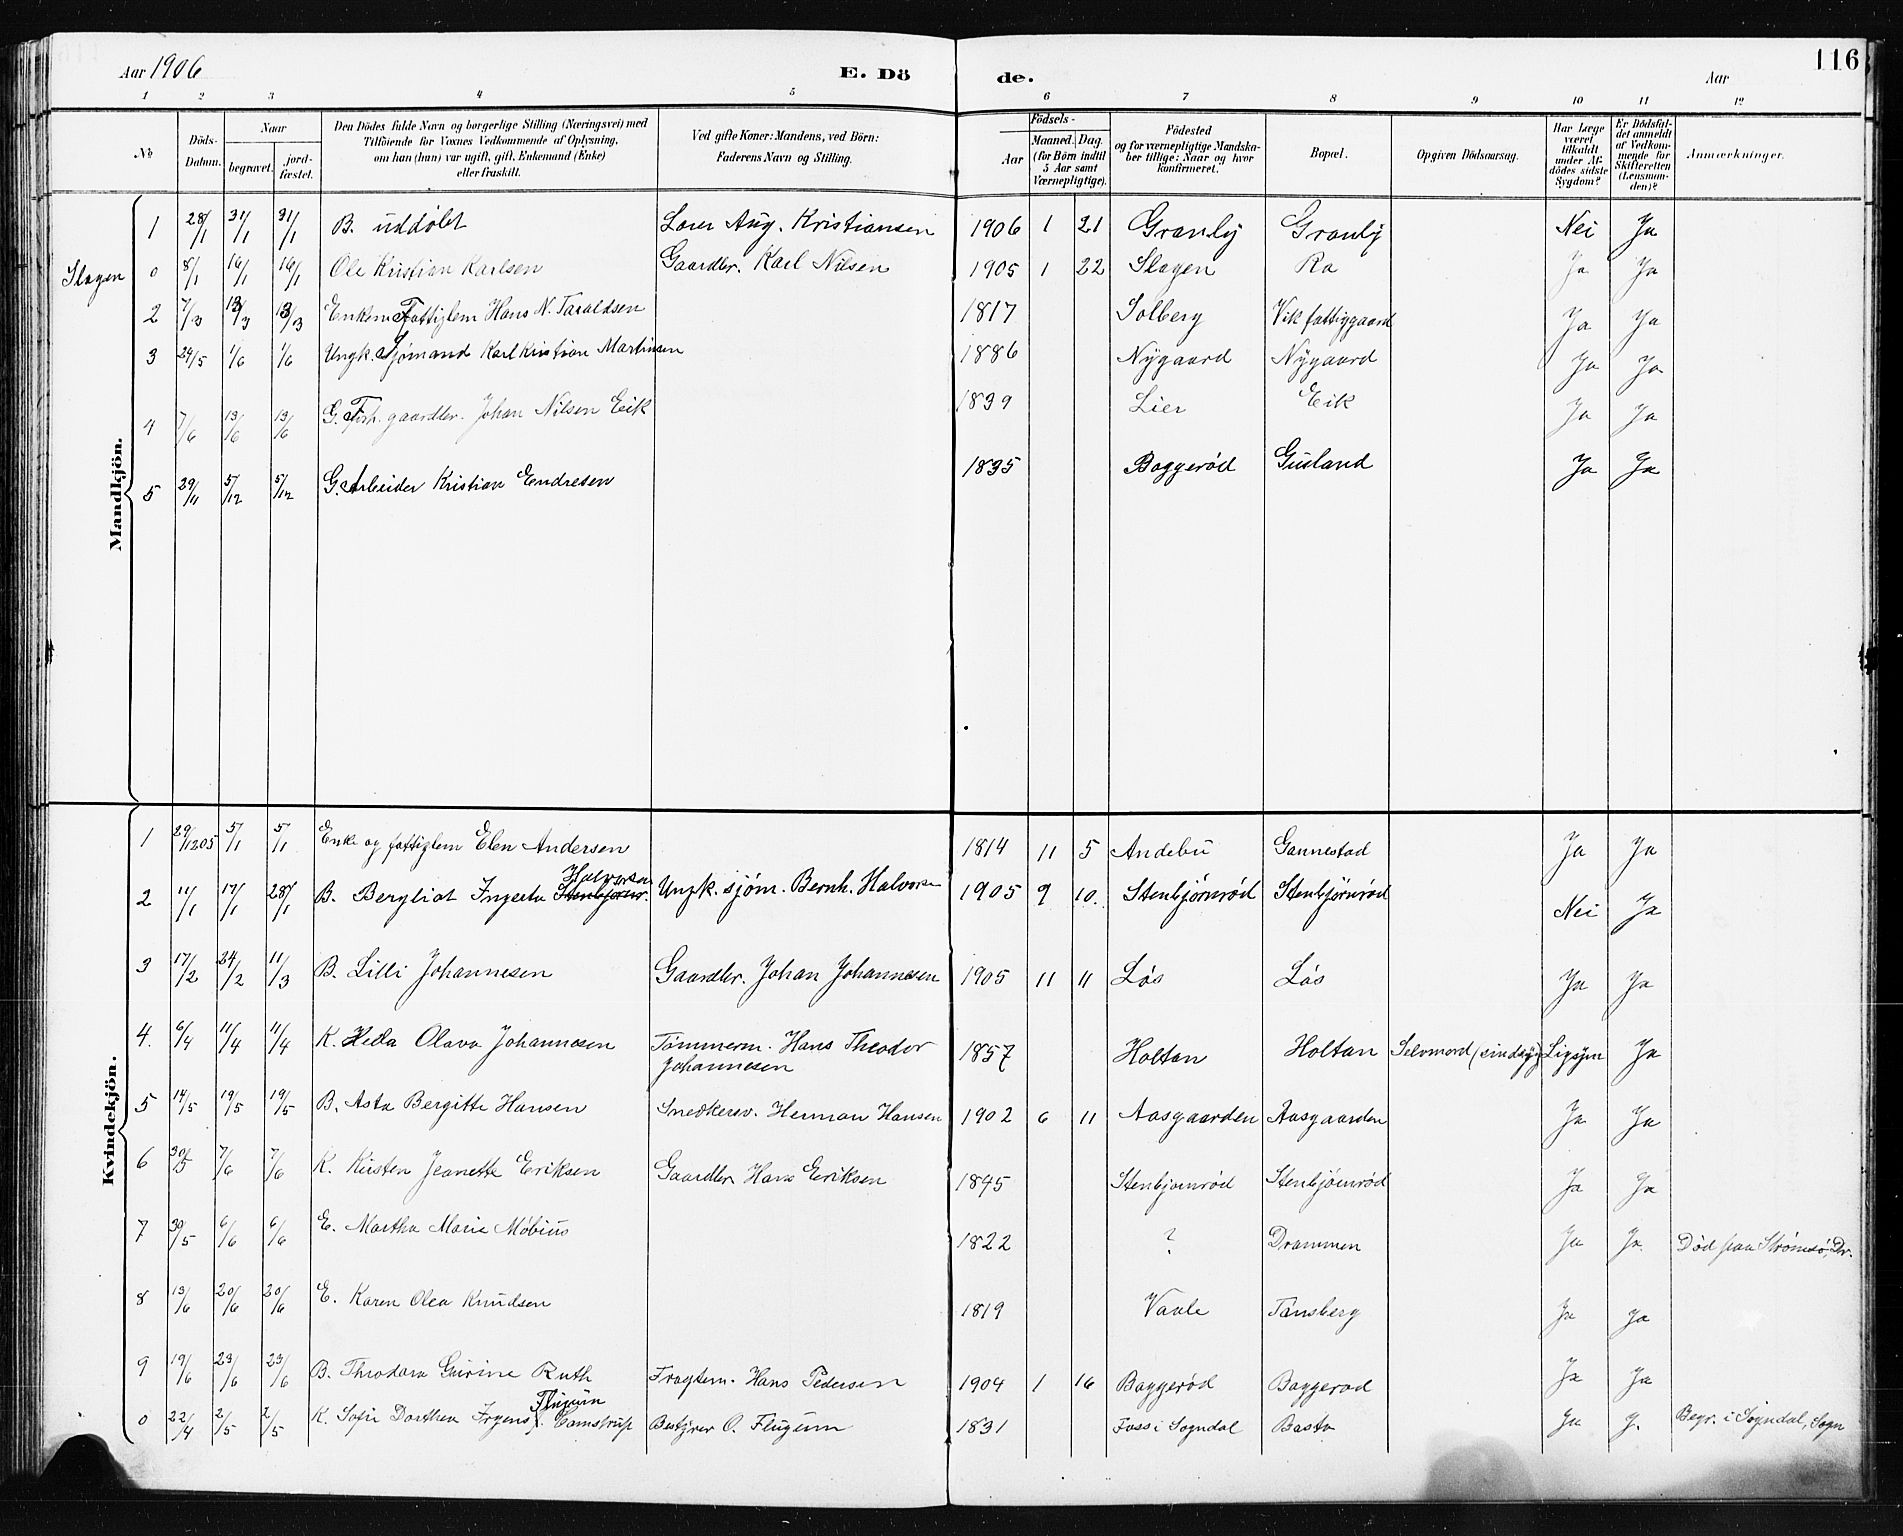 116
Aar 1906 E. Dö de. Aar
1 2 3 4 5 6 7 8 9 10 11 12
No
Döds-Datum.
Naar
begravet.
jord-fæstet.
Den Dödes fulde Navn og borgerlige Stilling (Næringsvei) med
Tilföiende for Voxnes Vedkommende af Oplysning,
om han (hun) var ugift, gift, Enkemand (Enke)
eller fraskilt.
Ved gifte Koner: Mandens, ved Börn:
Faderens Navn og Stilling.
Födsels-
Aar
Maaned. Dag.
(for Börn indtil
5 Aar samt
Værnepligtige).
Födested
og for værnepligtige Mandska-
ber tillige: Naar og hvor
konfirmeret.
Bopæl.
Opgiven Dödsaarsag.
Har Læge
været
tilkaldt
under Af-
dödes sidste
Sygdom?
Er Dödsfal-
det anmeldt
af Vedkom-
mende for
Skifteretten
(Lensman-
den)?
Anmærkninger.
Mandkjön.
1 28/1 31/1 31/1 B. uddøbt Aug. Kristiansen 1906 1 21 Granly Granly Nei Ja
Slagen 0 8/1 16/1 16/1 Ole Kristian Karlsen Gaardbr. Karl Nilsen 1905 1 22 Slagen Ra Ja Ja
2 7/3 13/3 13/3 Enkem. Fattiglem Hans N. Taraldsen 1817 Solberg Vik fattiggaard Ja Ja
3 24/5 1/6 1/6 Ungk. Sjømand Karl Kristian Martinsen 1886 Nygaard Nygaard Ja Ja
4 7/6 13/6 13/6 G. Forh. gaardbr. Johan Nilsen Eik 1839 Lier Eik Ja Ja
5 29/11 5/12 5/12 G. Arbeider Kristian Endresen 1835 Baggerød Gusland Ja Ja
Kvindekjön.
1 29/12 05 5/1 5/1 Enke og fattiglem Elen Andersen 1814 11 5 Andebu Gannestad Ja Ja
Halvorsen
2 11/1 17/1 28/1 B. Bergliot Ingerta Ungk. sjøm. Bernh. Halvorsen 1905 9 10. Stenbjørnrød Stenbjørnrød Nei Ja
3 17/2 24/2 11/3 B. Lilli Johannesen Gaardbr. Johan Johannesen 1905 11 11 Løs Løs Ja Ja
4. 6/4 11/4 11/4 K. Helda Olava Johannesen Tømmerm. Hans Theodor Johannesen 1857 Holtan Holtan Selvmord (sindsyg) Ligsyn Ja
5 14/5 19/5 19/5 B. Asta Bergitte Hansen Snedkersv. Herman Hansen 1902 6 11 Aasgaarden Aasgaarden Ja Ja
6 30/5 7/6 7/6 K. Kirsten Jeanette Eriksen Gaardbr. Hans Eriksen 1845 Stenbjørnrød Stenbjørnrød Ja Ja
7 30/5 6/6 6/6 E. Martha Marie Møbius 1822 ? Drammen Ja Ja Død paa Strømsø, Dr.
8 13/6 20/6 20/6 E. Karen Olea Knudsen 1819 Vaale Tønsberg Ja Ja
9 19/6 23/6 23/6 B. Theodora Gurine Ruth Fragtem. Hans Pedersen 1904 1 16 Baggerød Baggerød Ja Ja
Flugum
0 22/4 2/5 2/5 K. Sofie Dorthea Irgens f. Camstrup Bestyrer O. Flugum 1831 Foss i Sogndal Bastø Ja J. Begr. i Sogndal, Sogn